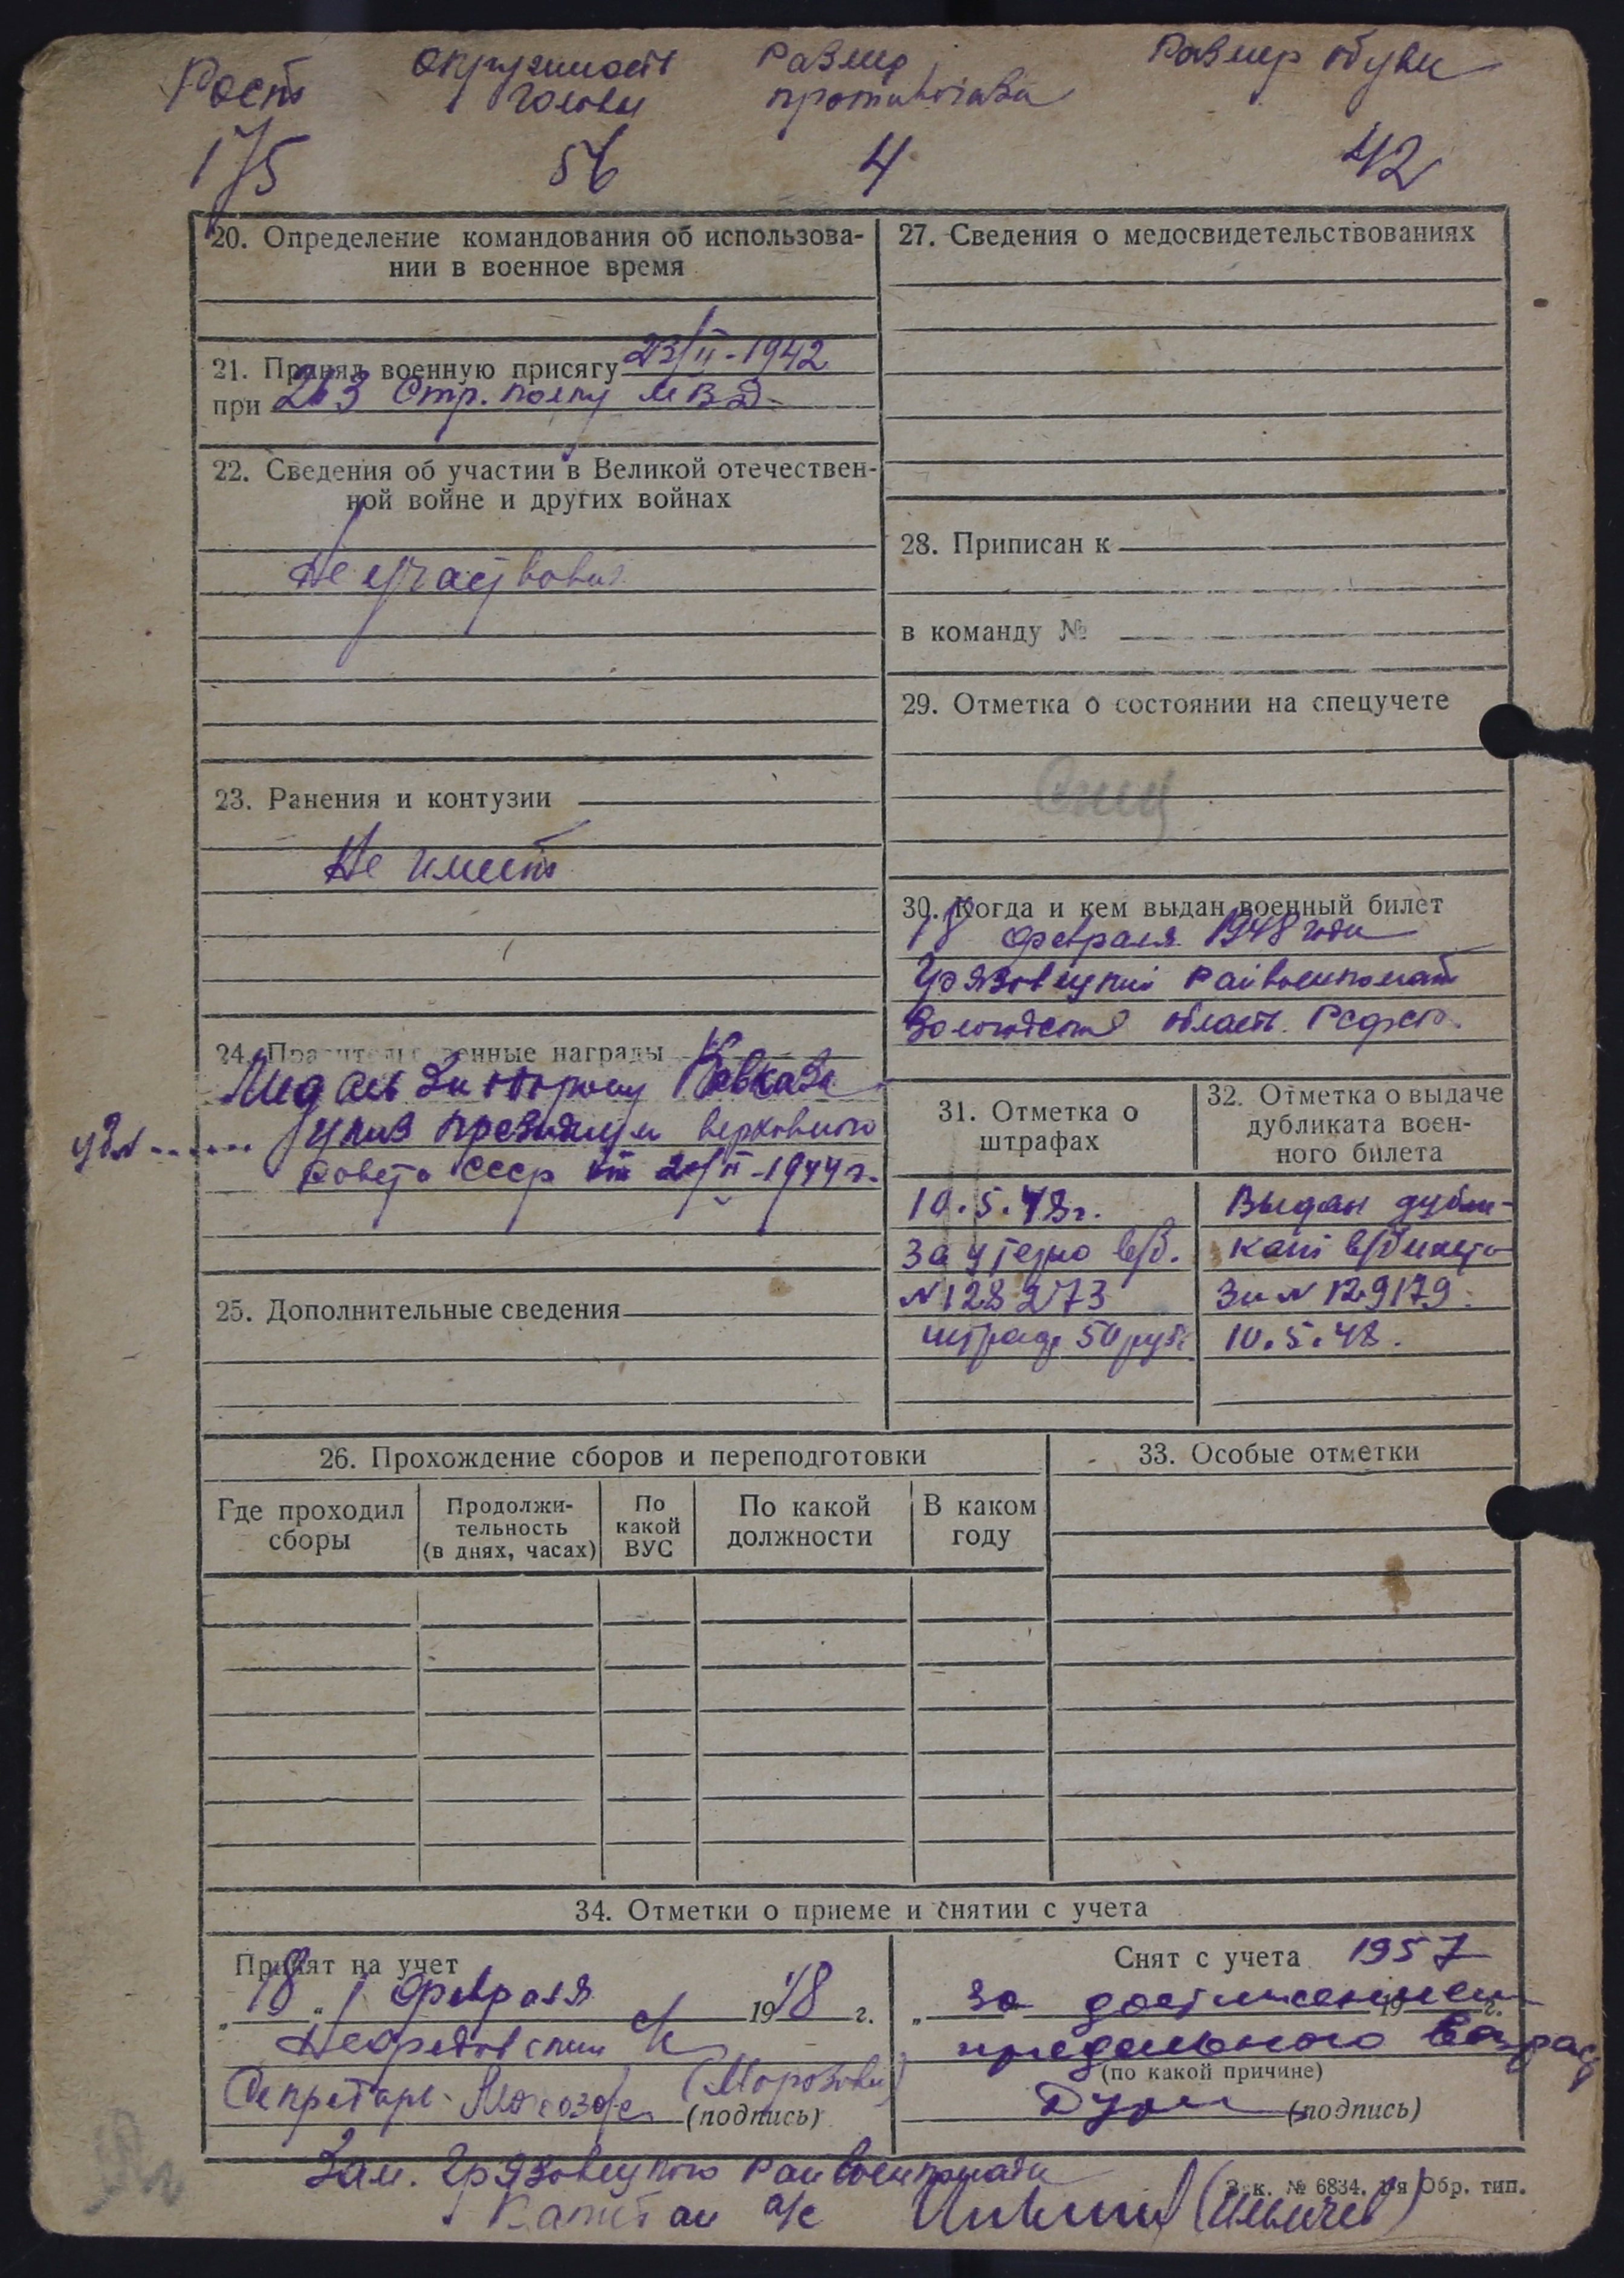 Рост Окружность Размер Размер обуви
головы противогаза
175 56 4 42
20. Определение командования об использова-
нии в военное время
21. Принял военную присягу 23/II-1942
при 263 Стр. полку МВД
22. Сведения об участии в Великой отечествен-
ной войне и других войнах
Не участвовал
23. Ранения и контузии
Не имеет
24. Правительственные награды
Медаль За оборону Кавказа
Указ президиум верховного
Совета СССР от 1944 г.
25. Дополнительные сведения
27. Сведения о медосвидетельствованиях
28. Приписан к
в команду №
29. Отметка о состоянии на спецучете
30. Когда и кем выдан военный билет
18 февраля 1948 года
Грязовецкий Райвоенкомат
Вологодской область РСФСР.
31. Отметка о
штрафах
10.5.48г.
За утерю в/б.
№128273
штраф 50 руб.
32. Отметка о выдаче
дубликата воен-
ного билета
Выдан дубли-
кат в/билета
За № 129179.
10.5.48.
26. Прохождение сборов и переподготовки
Где проходил
сборы
Продолжи-
тельность
(в днях, часах)
По
какой
ВУС
По какой
должности
В каком
году
33. Особые отметки
34. Отметки о приеме и снятии с учета
Принят на учет
„18“ Февраля 1948 г.
Нефедовский с/с
Секретарь (Морозова)
(подпись)
Снят с учета 1957
„ за достижением 19 г.
предельного возраст
(по какой причине)
(подпись)
Зам. Грязовецкого Райвоенкомата
Капитан а/с (Ильичев)
Зак. № 6834. 1-я Обр. тип.